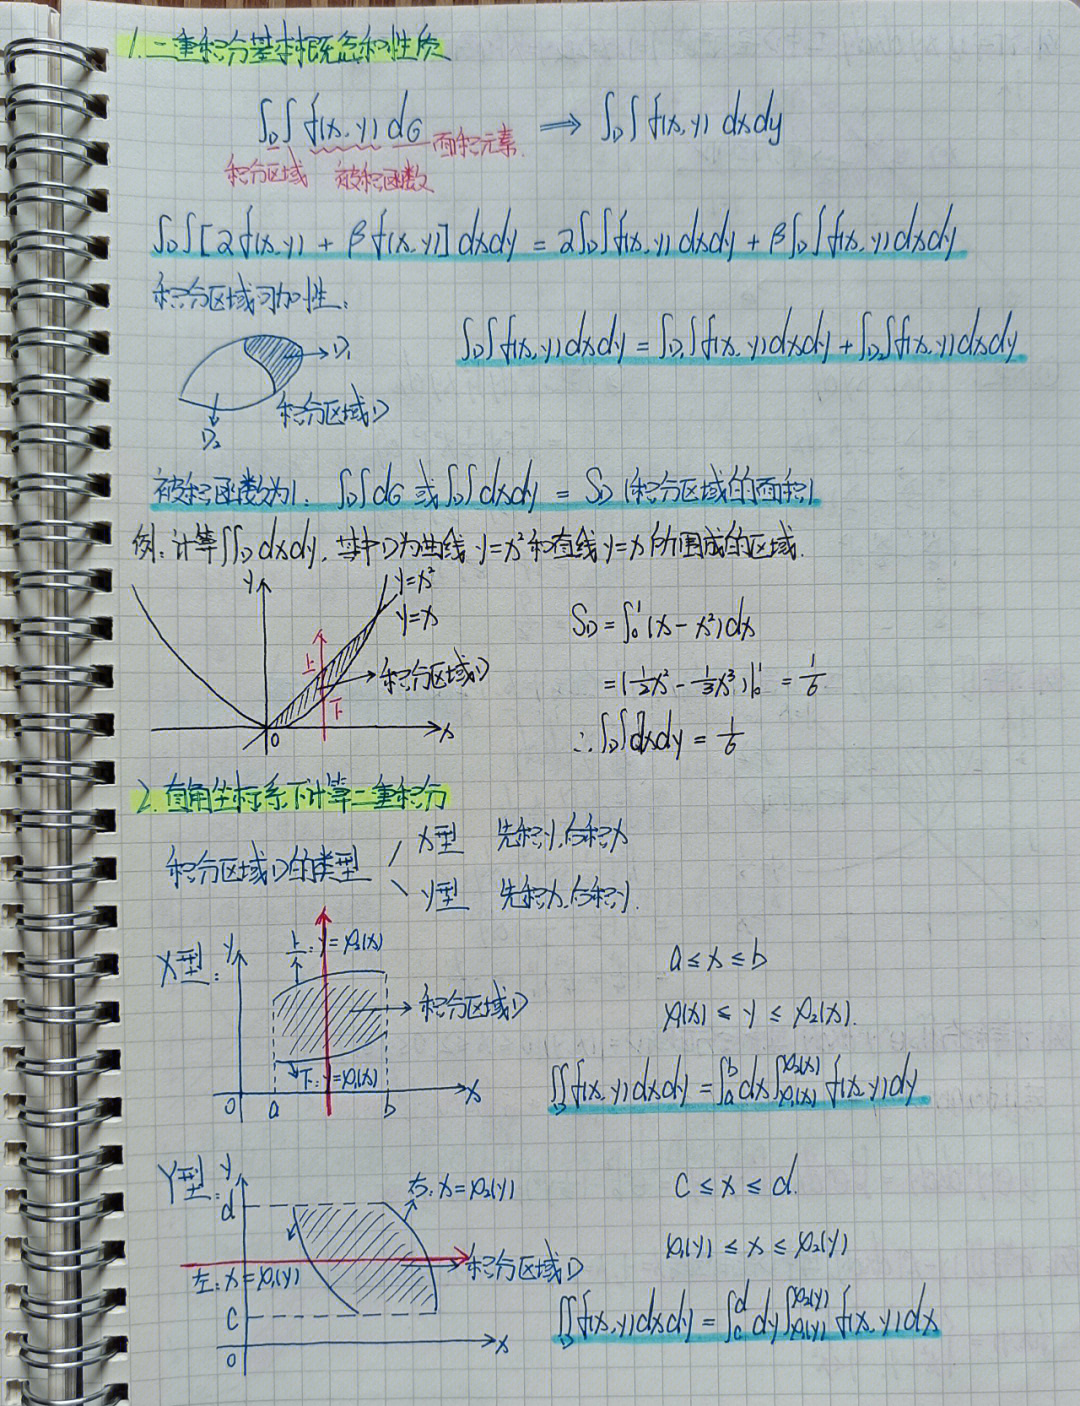 1.二重积分基本概念和性质
∫D∫ f(x,y) dσ ⟹ ∫D∫ f(x,y) dxdy
面积元素.
积分区域 被积函数
∫D∫[2f(x,y) + βf(x,y)]dxdy = 2∫D∫f(x,y)dxdy + β∫D∫f(x,y)dxdy
积分区域可加性:
∫D∫f(x,y)dxdy = ∫D₁∫f(x,y)dxdy + ∫D₂∫f(x,y)dxdy
D₁
积分区域D
D₂
被积函数为1: ∫D∫dσ 或 ∫D∫dxdy = SD (积分区域的面积)
例:计算∫∫D dxdy, 其中D为曲线 y=x² 和直线 y=x 所围成的区域.
y y=x²
y=x
上 积分区域D
下
0 x
SD = ∫₀¹(x-x²)dx
= (1/2x² - 1/3x³)|₀¹ = 1/6
∴∫D∫dxdy = 1/6
2.直角坐标系下计算二重积分
积分区域D的类型
X型 先积y,后积x
Y型 先积x,后积y.
X型: y 上:y=φ₂(x)
积分区域D
下:y=φ₁(x)
0 a b x
a ≤ x ≤ b
φ₁(x) ≤ y ≤ φ₂(x).
∬D f(x,y)dxdy = ∫ₐᵇdx∫φ₁(x)^φ₂(x) f(x,y)dy
Y型: y
d 右:x=φ₂(y)
积分区域D
左:x=φ₁(y)
c
0 x
c ≤ x ≤ d.
φ₁(y) ≤ x ≤ φ₂(y)
∬D f(x,y)dxdy = ∫c^d dy∫φ₁(y)^φ₂(y) f(x,y)dx